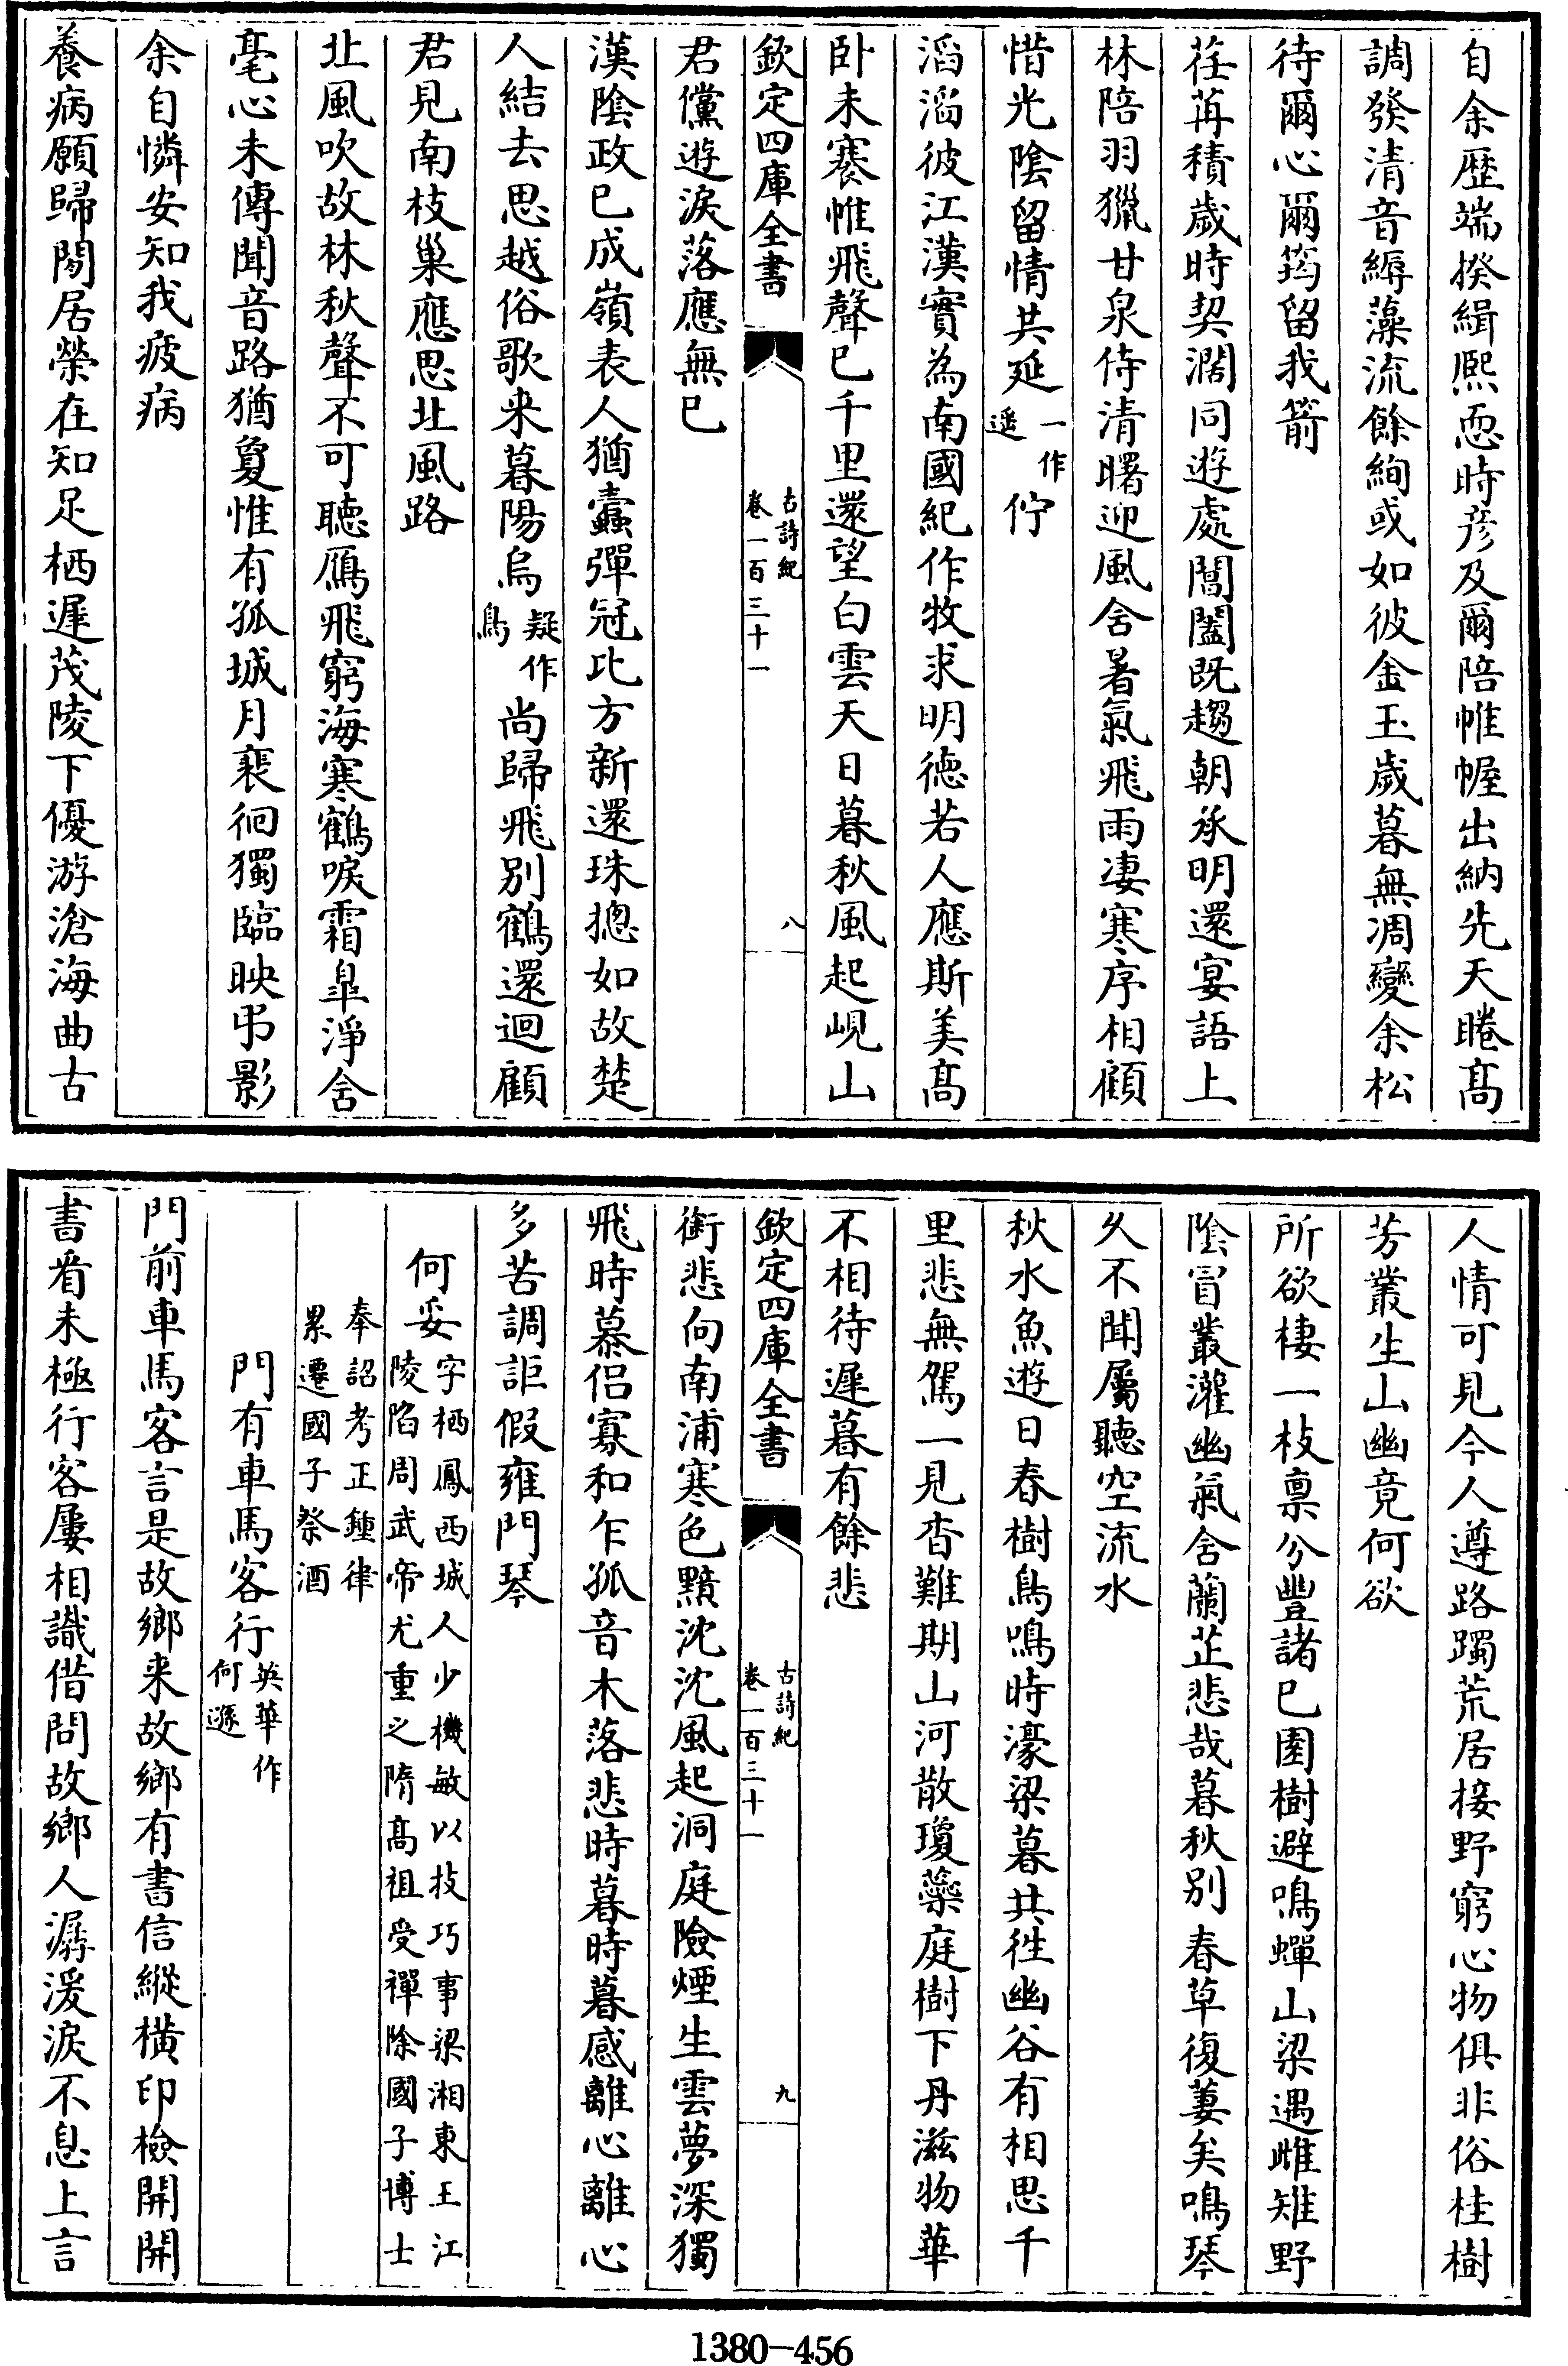 自余歴端揆緝熙恧時彦及爾陪帷幄出納先天睠髙
調發清音縟藻流餘絢或如彼金玉歲暮無凋變余松
待爾心爾筠留我箭
荏苒積歲時契濶同遊處閶闔既趨朝承明還宴語上
林陪羽獵甘泉侍清曙迎風含暑氣飛雨淒寒序相顧
惜光隂留情共延一作遥佇
滔滔彼江漢實為南國紀作牧求明徳若人應斯美髙
卧未褰帷飛聲已千里還望白雲天日暮秋風起峴山
君儻遊淚落應無已
漢隂政已成嶺表人猶蠧彈冠比方新還珠揔如故楚
人結去思越俗歌来暮陽烏疑作鳥尚歸飛别鶴還迴顧
君見南枝巢應思北風路
北風吹故林秋聲不可聽鴈飛窮海寒鶴唳霜臯淨含
毫心未傳聞音路猶敻惟有孤城月裴徊獨臨映弔影
余自憐安知我疲病
養病願歸閑居榮在知足栖遲茂陵下優游滄海曲古
欽定四庫全書
古詩紀
卷一百三十一
八
人情可見今人遵路躅荒居接野窮心物俱非俗桂樹
芳叢生山幽竟何欲
所欲棲一枝禀分豐諸已園樹避鳴蟬山梁遇雌雉野
隂冒叢灌幽氣含蘭芷悲哉暮秋别春草復萋矣鳴琴
久不聞屬聽空流水
秋水魚遊日春樹鳥鳴時濠梁暮共徃幽谷有相思千
里悲無駕一見杳難期山河散瓊蘂庭樹下丹滋物華
不相待遲暮有餘悲
銜悲向南浦寒色黯沈沈風起洞庭險煙生雲夢深獨
飛時慕侣寡和乍孤音木落悲時暮時暮感離心離心
多苦調詎假雍門琴
何妥字栖鳳西城人少機敏以技巧事梁湘東王江
陵陷周武帝尤重之隋髙祖受禪除國子博士
奉詔考正鍾律
累遷國子祭酒
門有車馬客行英華作何遜
門前車馬客言是故鄉来故鄉有書信縱横印檢開開
書看未極行客屢相識借問故鄉人潺湲淚不息上言
欽定四庫全書
古詩紀
卷一百三十一
九
1380-456